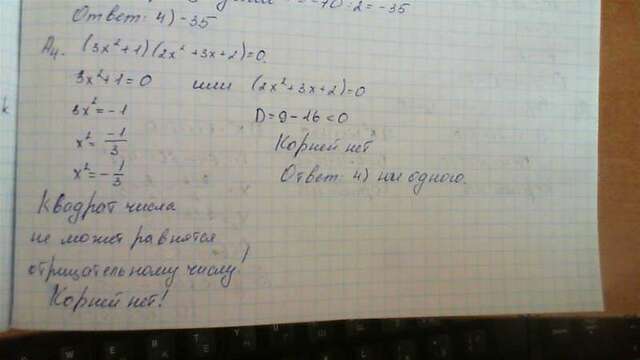 -10:2=-35
Ответ: 4) -35
А4. (3x²+1)(2x²+3x+2)=0.
3x²+1=0 или (2x²+3x+2)=0
3x²=-1 D=9-16<0
x²=-1/3 Корней нет
x²=-1/3 Ответ: 4) ни одного.
Квадрат числа
не может равнятся
отрицательному числу!
Корней нет!